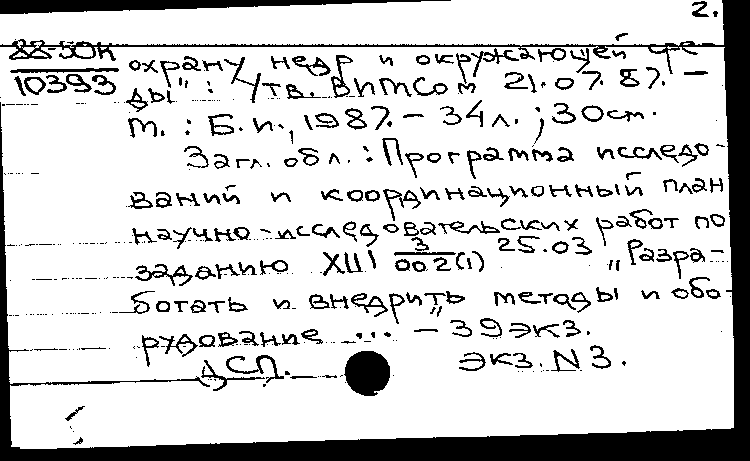 2.
88-50К
10393
охрану недр и окружающей сре-
ды" : Утв. ВИМСом 21.07.87. -
М. : Б.и., 1987. - 34л. ; 30см.
Загл. обл. : Программа исследо-
ваний и координационный план
научно-исследовательских работ по
заданию XIII 3/002(1) 25.03 „Разра-
ботать и внедрить методы и обо-
рудование ..." - 39 экз.
ДСП. экз. N 3.